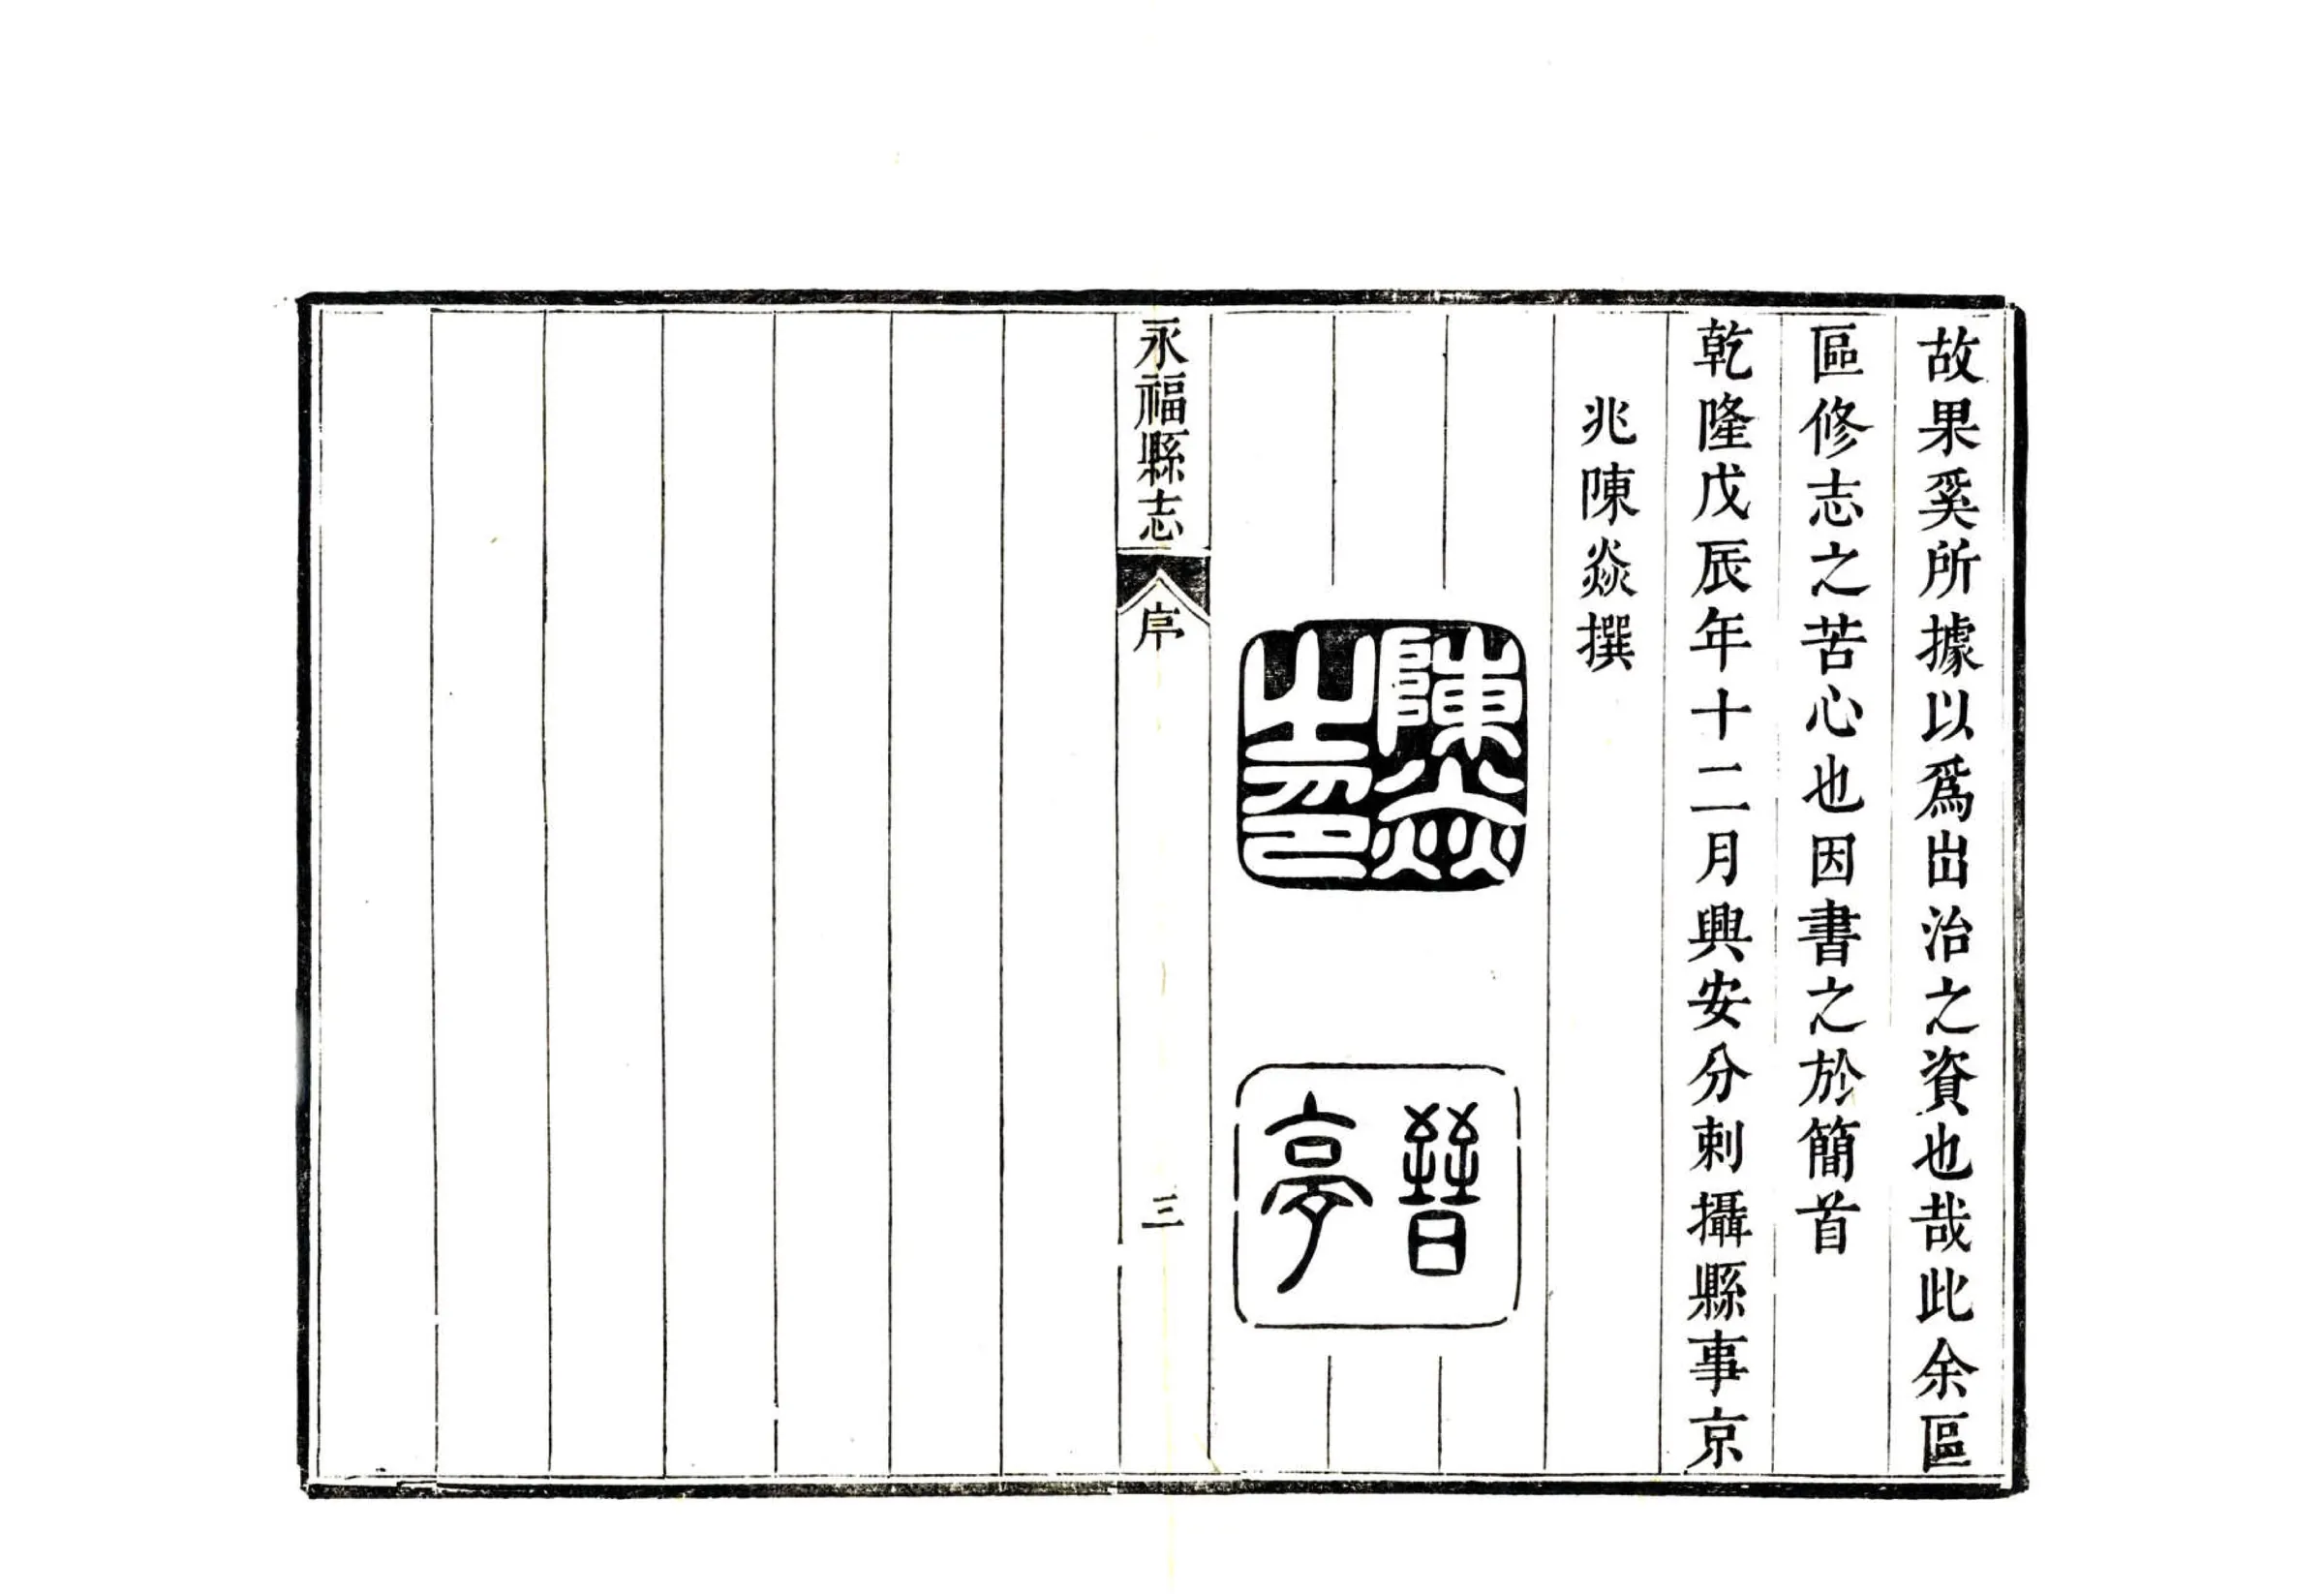 故果奚所據以爲出治之資也哉此余區
區修志之苦心也因書之於簡首
乾隆戊辰年十二月興安分刺攝縣事京
兆陳焱撰
陳焱之印
晉亭
永福縣志
序
三